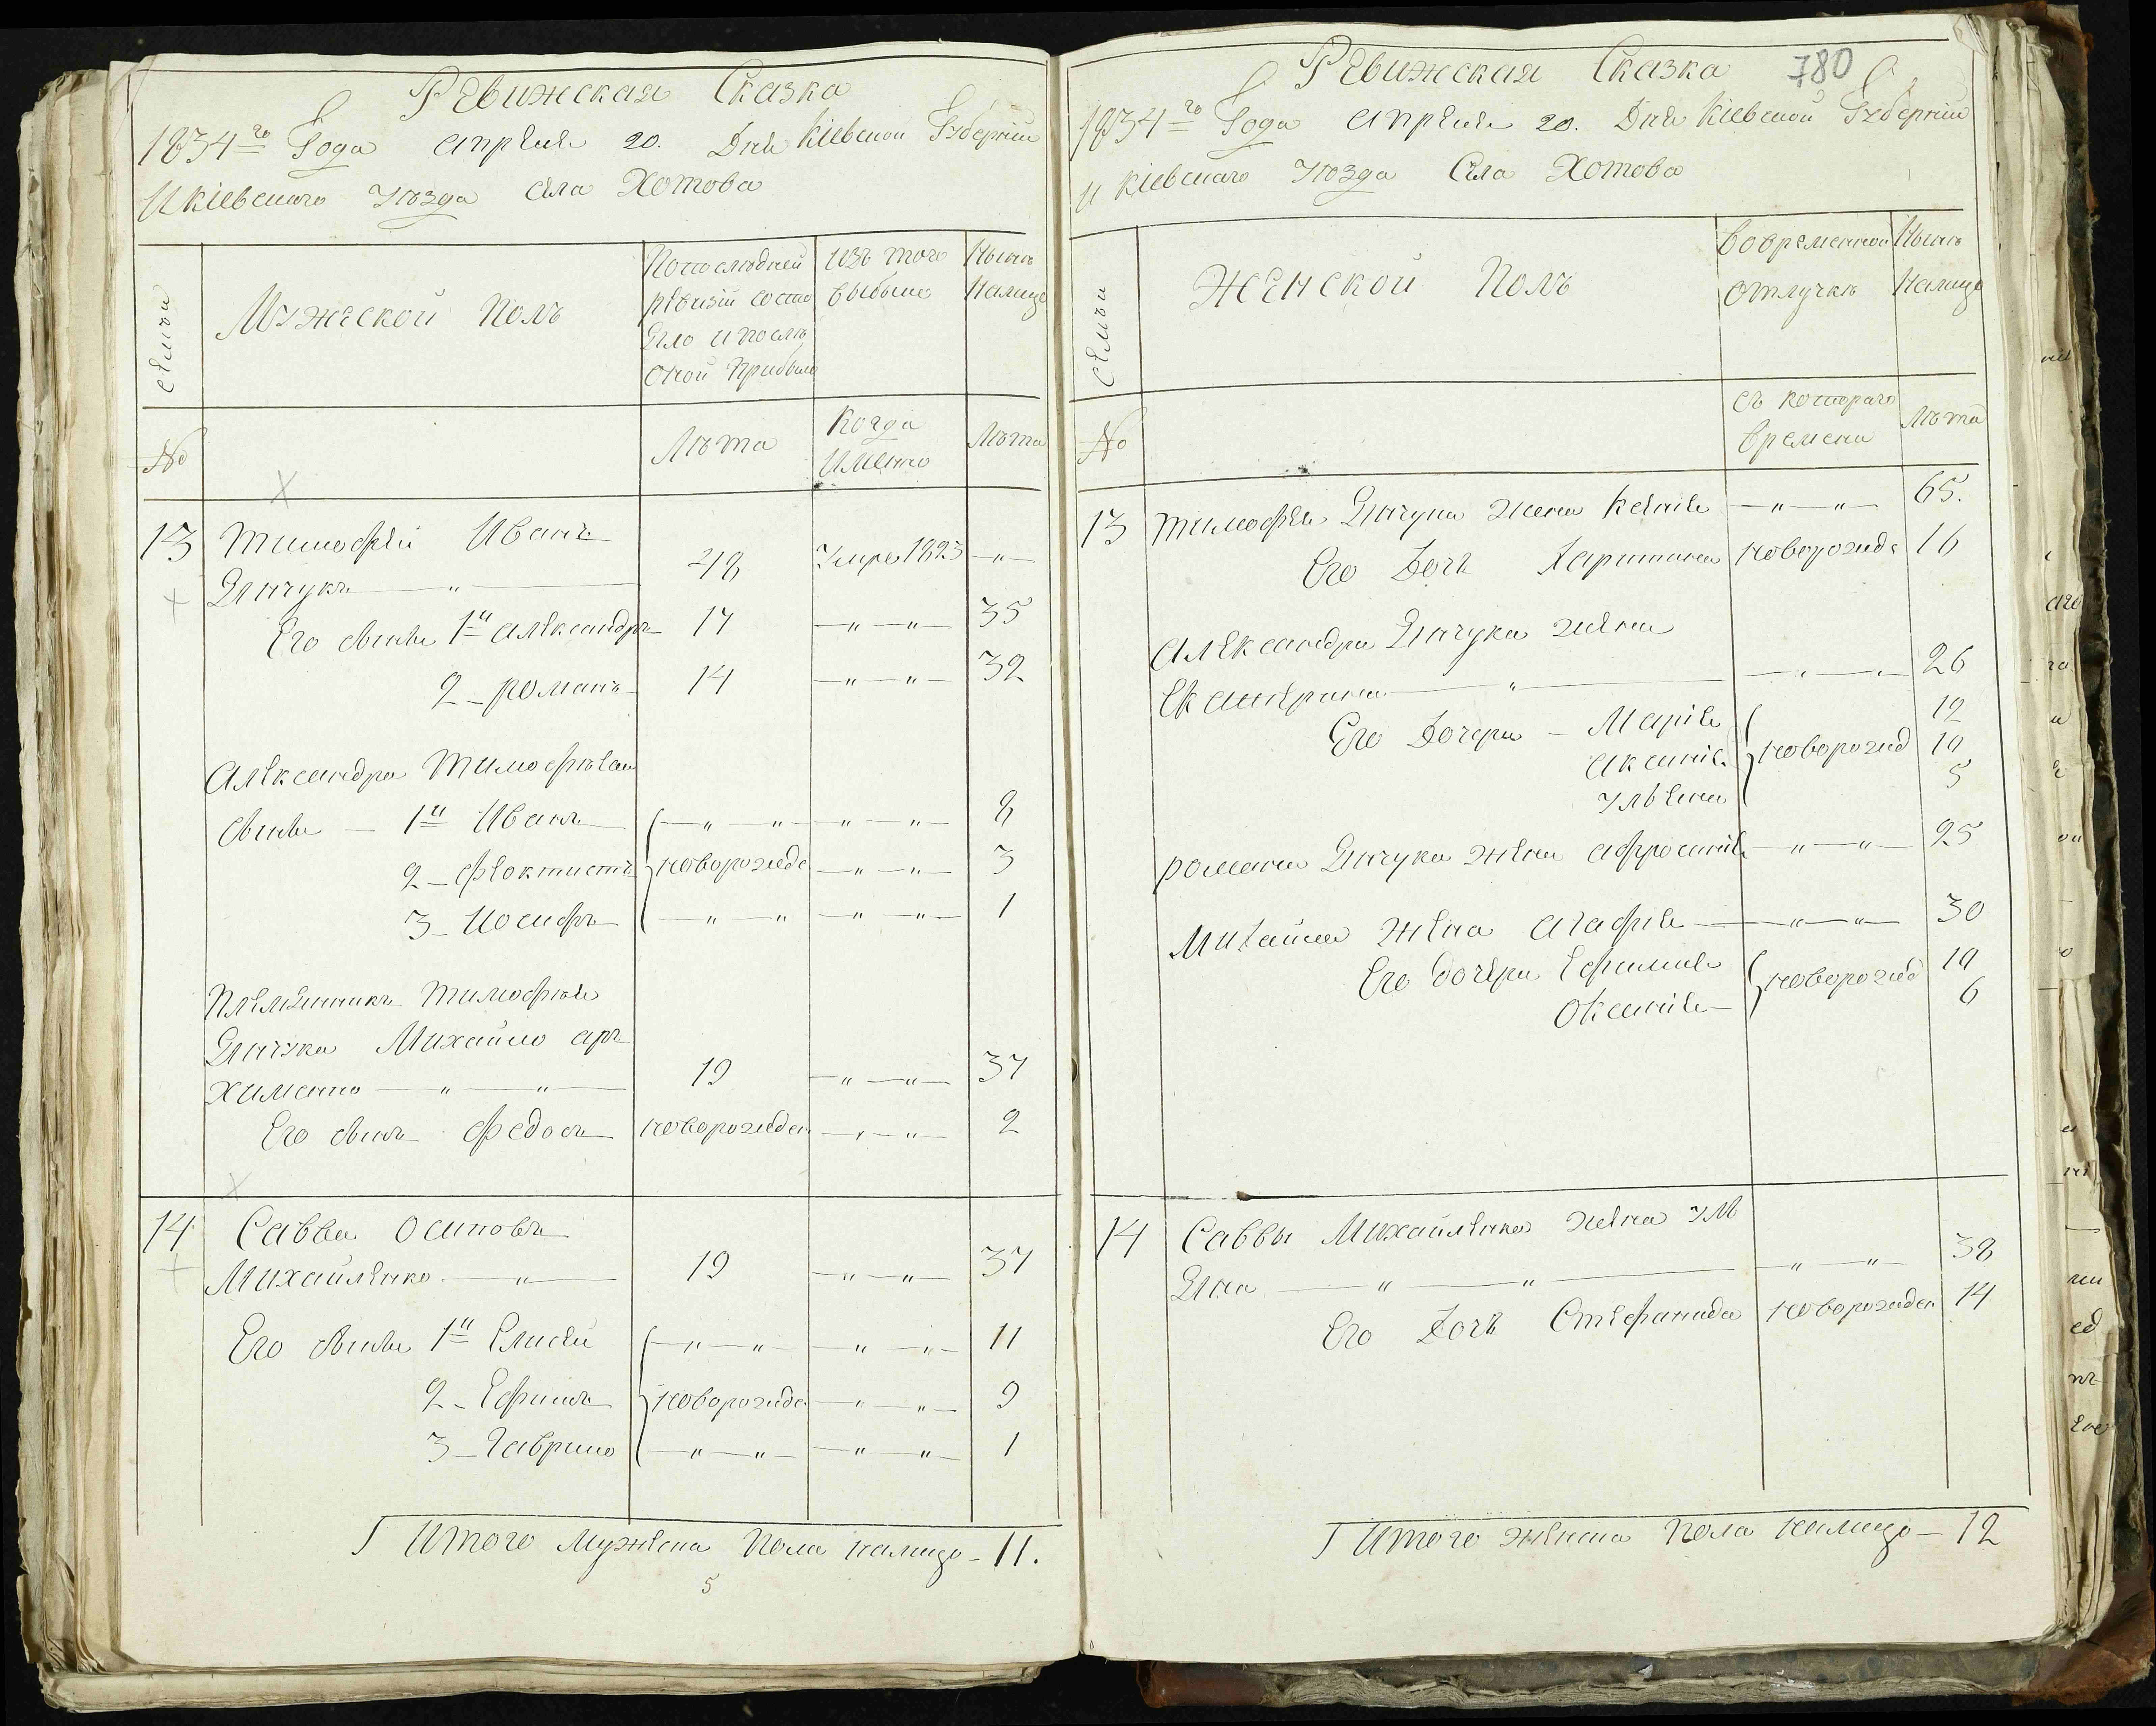 Ревижская Сказка
1834го Года Апреля 20. Дня Кіевской Губерніи
И Кіевскаго Уезда Села Хотова
Семьи
Мужеской Полъ
По последней
ревизіи состо
яло и после
оной прибыло
изъ того
выбыло
Ныне
Налицо
No
Лета
Когда
Именно
Лета
13 Тимофей Иванъ
Янчукъ — " — 48 Умре 1823 — " —
Его сыны 1й Александръ 17 — " — " — 35
2 – Романъ 14 — " — " — 32
Александра Тимофеева
сыны — 1й Иванъ — " — " — " — " — 8
2 – Феоктистъ новорожде — " — " — 3
3 – Иосифъ — " — " — " — " — 1
Племянникъ Тимофея
Янчука Михайло ар
хименко — " — " — 19 — " — " — 37
Его сынъ Федосъ новорожден — " — " — 2
14 Савва Осиповъ
Михайленко — " — 19 — " — " — 37
Его сыны 1й Елисей — " — " — " — " — 11
2 – Ефимъ новорожде — " — " — 9
3 – Гаврило — " — " — " — " — 1
Итого Мужеска Пола налицо – 11.
5
780
Ревижская Сказка
1834го Года Апреля 20. Дня Кіевской Губерніи
И Кіевскаго Уезда Села Хотова
Семьи
Женской Полъ
Вовременной
отлучке
Ныне
Налицо
No
съ котораго
времени
Лета
13 Тимофея Янчука жена Ксенія — " — " — 65.
Его Дочь Харитина новорожде 16
Александра Янчука жена
Екатерина — " — — " — " — 26
Его Дочери – Марія 12
Аксенія новорожд 10
Ульяна 5
Романа Янчука жена Афросинія — " — " — 25
Михайла жена Агафія — " — " — 30
Его дочери Ефимія новорожд 10
Оксенія 6
14 Саввы Михайленка жена Ул
яна — " — " — — " — " — 38
Его Дочь Стефанида новорожден 14
Итого женска Пола налицо – 12